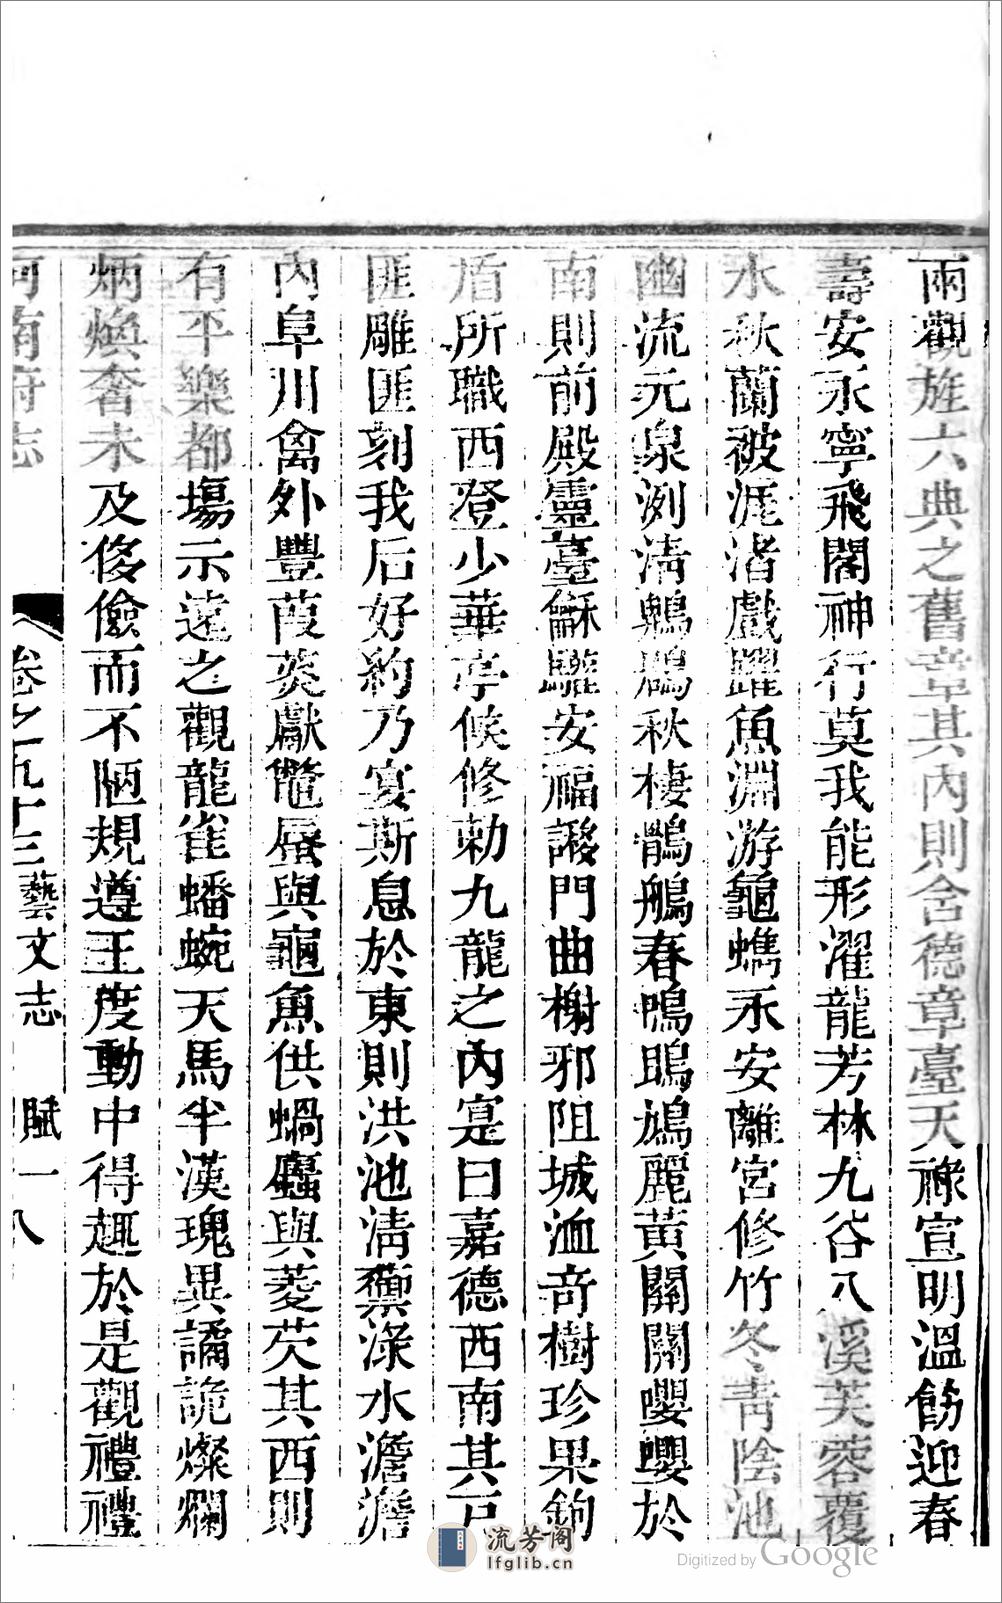 兩觀旌六典之舊章其內則含德章臺天祿宣明溫飭迎春
壽安永寧飛閣神行莫我能形濯龍芳林九谷八溪芙蓉覆
水秋蘭被涯渚戲躍魚淵游龜蠵永安離宮修竹冬靑陰池
幽流元泉洌淸鵯鶋秋棲鶻鵃春鳴鴡鳩麗黃關關嚶嚶於
南則前殿靈臺龢驩安福謻門曲榭邪阻城洫奇樹珍果鉤
盾所職西登少華亭候修勅九龍之內寔曰嘉德西南其戶
匪雕匪刻我后好約乃宴斯息於東則洪池淸蘌淥水澹澹
內阜川禽外豐葭菼獻鼈蜃與龜魚供蝸蠯與菱芡其西則
有平樂都場示遠之觀龍雀蟠蜿天馬半漢瑰異譎詭燦爛
炳煥奢未及侈儉而不陋規遵王度動中得趣於是觀禮禮
河南府志 卷之九十三 藝文志 賦一 八
流芳阁
lfglib.cn
Digitized by Google